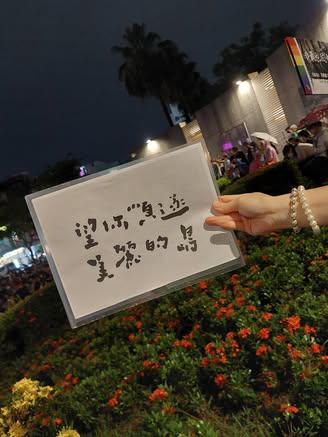 望你順遂
美麗的島